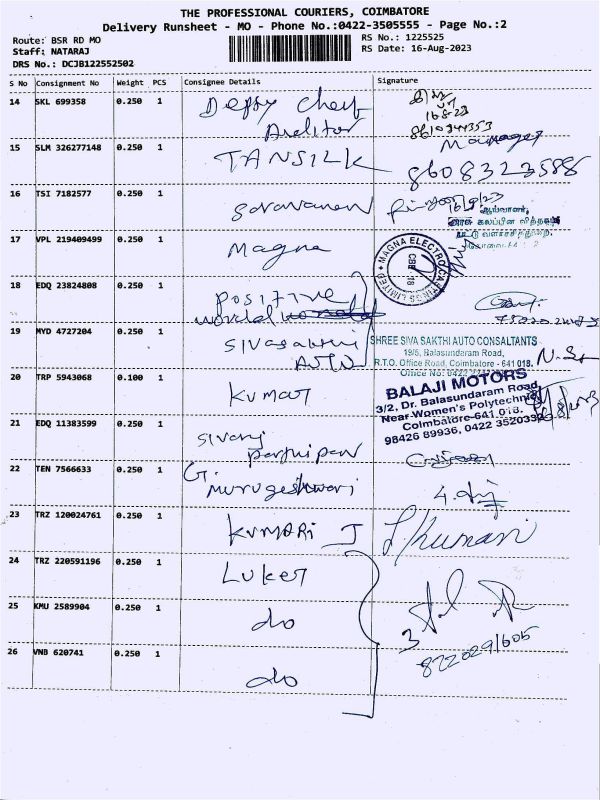 THE PROFESSIONAL COURIERS, COIMBATORE
Delivery Runsheet - MO - Phone No.:0422-3505555 - Page No.:2
Route: BSR RD MO
Staff: NATARAJ
DRS No.: DCJB122552502
RS No.: 1225525
RS Date: 16-Aug-2023
S No Consignment No Weight PCS Consignee Details Signature
14 SKL 699358 0.250 1 Depty Chef
Auditor
16-8-23
15 SLM 326277148 0.250 1 TANSILK
Manager
8608323588
16 TSI 7182577 0.250 1 Saravanan
16/8/23
17 VPL 219409499 0.250 1 Magna
MAGNA ELECTRO CASTINGS LIMITED
CBE - 18
18 EDQ 23824808 0.250 1 positive
world
19 MYD 4727204 0.250 1 Sivasakthi
Auto
SHREE SIVA SAKTHI AUTO CONSALTANTS
19/5, Balasundaram Road,
R.T.O. Office Road, Coimbatore - 641 018.
Office No: 0422
20 TRP 5943068 0.100 1 Kumar
BALAJI MOTORS
3/2, Dr. Balasundaram Road,
Near Women's Polytechnic
Coimbatore-641 018.
98426 89936, 0422 3520332
21 EDQ 11383599 0.250 1 Sivanj
parthipan
22 TEN 7566633 0.250 1 G.
Murugeshwari
23 TRZ 120024761 0.250 1 KUMARI J
J. Kumari
24 TRZ 220591196 0.250 1 Luker
25 KMU 2589904 0.250 1 do
3
26 VNB 620741 0.250 1 do